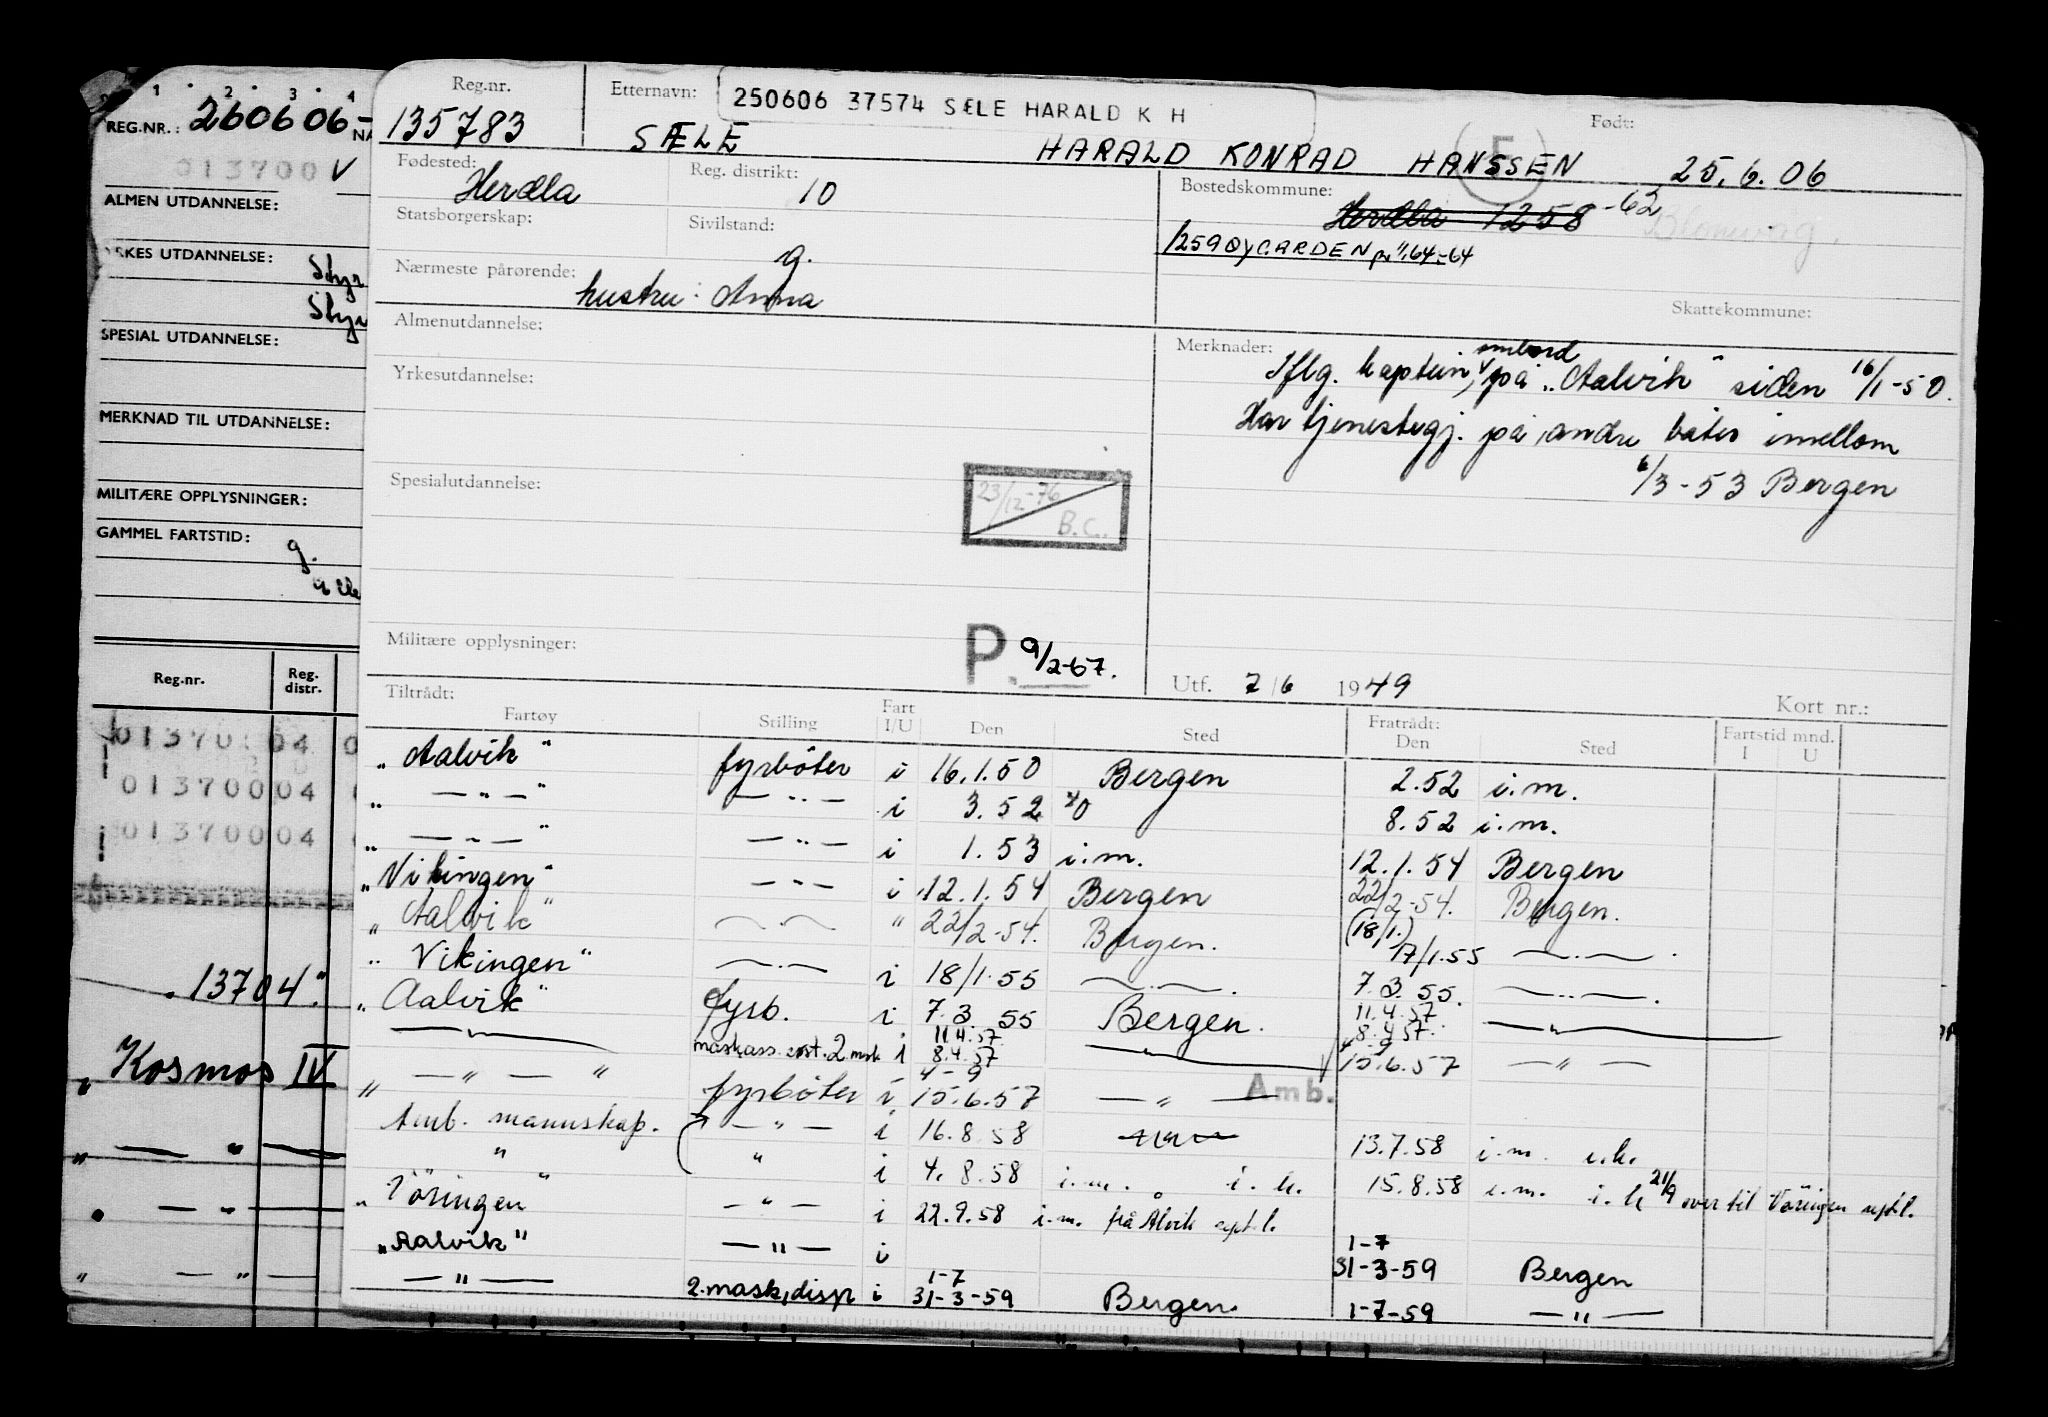 1 2 3 4
REG.NR.: 260606-
NA
013700 V
ALMEN UTDANNELSE:
UTDANNELSE: Styr
Styr
SPESIAL UTDANNELSE:
MERKNAD TIL UTDANNELSE:
MILITÆRE OPPLYSNINGER:
GAMMEL FARTSTID:
g.
Reg.nr. Reg. distr.
01370 04 0
01370004
01370004
13704"
„Kosmos IV
„ — " —
— " —
„ — " —
Reg.nr. 135783
Etternavn: SÆLE HARALD KONRAD HANSSEN
250606 37574 SÆLE HARALD K H
F
Født: 25.6.06
Fødested: Herdla
Reg. distrikt: 10
Bostedskommune: Herdla 1258 -62
Blomvåg.
1259 ØYGARDEN pr 1/1.64-64
Statsborgerskap:
Sivilstand: g.
Nærmeste pårørende: hustru: Anna
Skattekommune:
Almenutdannelse:
Merknader: Iflg. kaptein, ombord på „Aalvik" siden 16/1-50.
Har tjenestegj. på andre båter imellom
6/3-53 Bergen
Yrkesutdannelse:
Spesialutdannelse:
23/12-76 B.C.
Militære opplysninger:
P. 9/2-67.
Utf. 7/6 1949
Kort nr.:
Tiltrådt: Fratrådt:
Fartøy Stilling Fart I/U Den Sted Den Sted Fartstid mnd. I U
„Aalvik" fyrbøter i 16.1.50 Bergen 2.52 i.m.
„ — " — " — " — i 3.52 8.52 i.m.
„ — " — " — " — i 1.53 i.m. 12.1.54 Bergen
„Vikingen" — " — i 12.1.54 Bergen 22/2-54. Bergen.
„Aalvik" — " — " 22/2-54. Bergen. (18/1.) 17/1.55 — " — .
„Vikingen" — " — i 18/1.55 — " — . 7.3.55. — " — .
„Aalvik" fyrb. i 7.3.55 Bergen. 11.4.57 8.4.57 — " —
— " — maskass. 2.mask i 11.4.57 8.4.57 — " — 15.6.57 — " —
„ — " — " fyrbøter i 4-9 15.6.57 — " — Amb.
Amb. mannskap. — " — i 16.8.58 13.7.58 i.m. i.h.
" " i 4.8.58 i.m. i.h. 15.8.58 i.m. i.h 21/9 over til Vöringen
„Vöringen" — " — i 22.9.58 i.m. frå Alvik
„Aalvik" — " — i 1-7 31-3-59 Bergen
— " — 2.mask,disp i 1-7 31-3-59 Bergen. 1-7-59 — " —